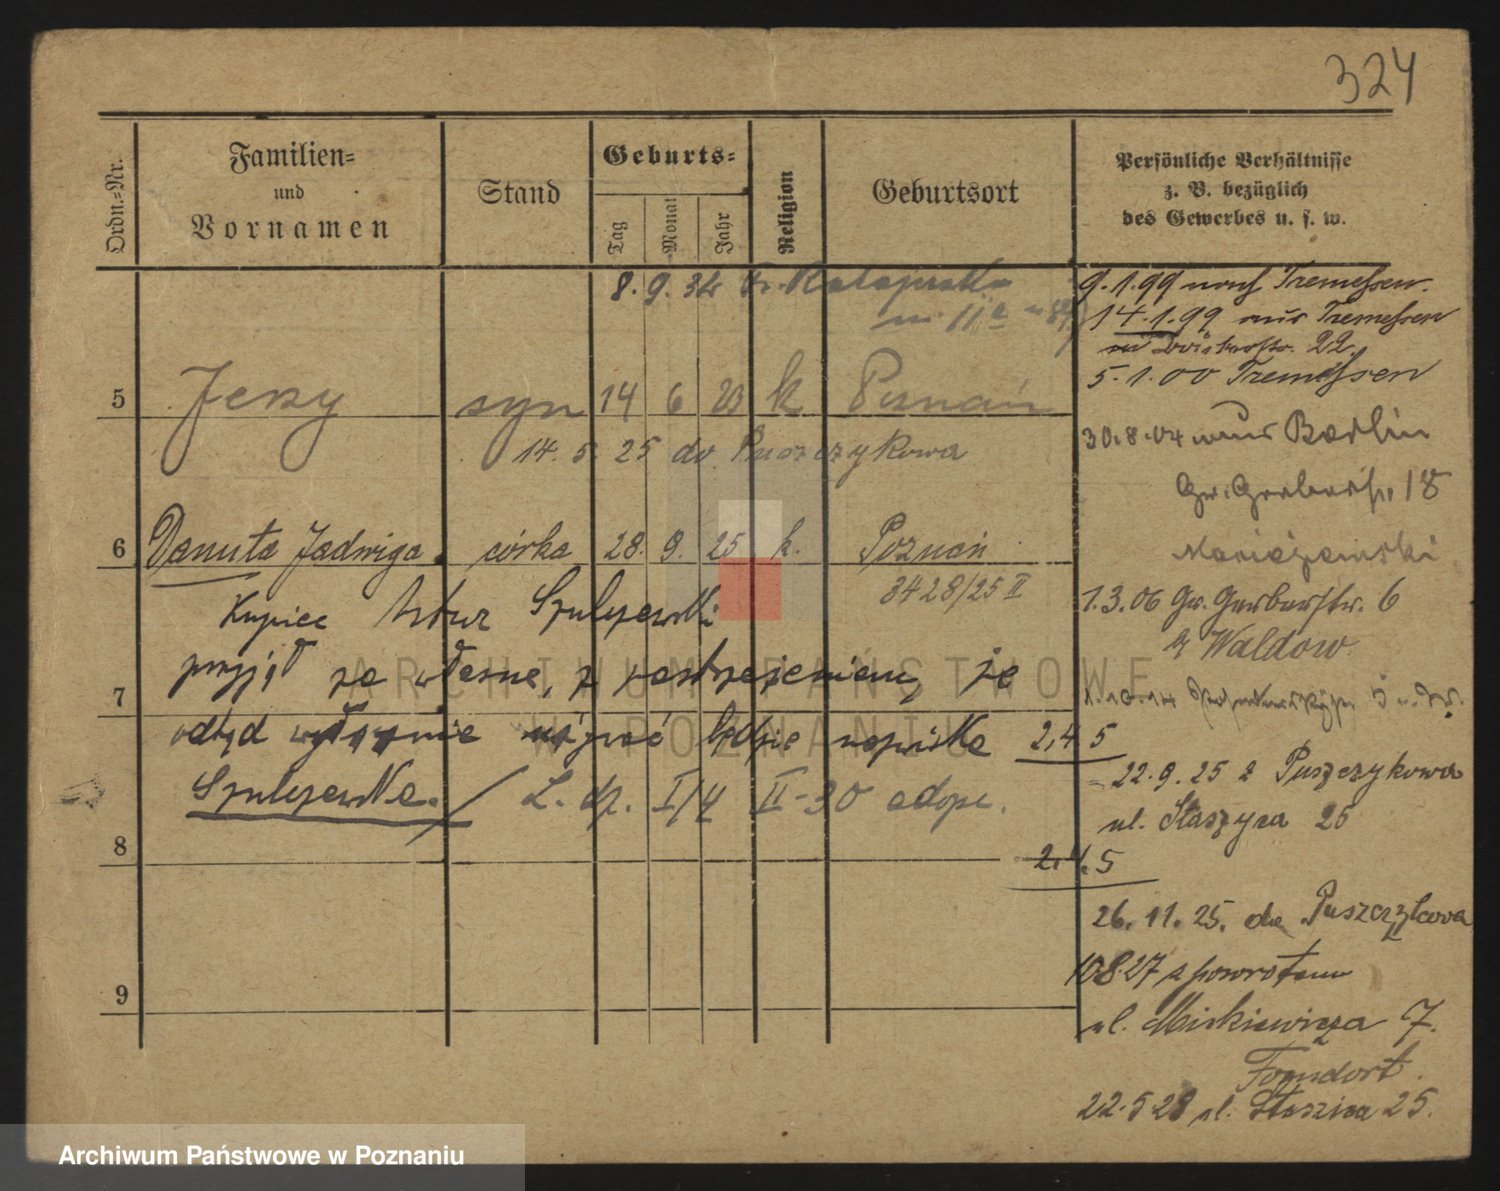 324
Ordn.-Nr.
Familien-
und
Vornamen
Stand
Geburts-
Tag
Monat
Jahr
Religion
Geburtsort
Persönliche Verhältnisse
z. B. bezüglich
des Gewerbes u. s. w.
8. 9. 34
11a
5 Jerzy syn 14 6 23 k Poznań
14. 5. 25 do Puszczykowa
6 Danuta Jadwiga córka 28. 9. 25 k. Poznań
3428/25 II
Kupiec Artur
przyjął za własne, z zastrzeżeniem, że
7
odtąd używać będzie nazwiska
L. dz. I/4 II-30 adopc.
8
9
9.1.99 nach Tremessen.
14.1.99 aus Tremessen
22.
5.1.00 Tremessen
30.8.04 aus Berlin
Gr. Gerberstr. 18
1.3.06 Gr. Gerberstr. 6
b Waldow
2,4 5
22.9.25 z Puszczykowa
ul. Staszyca 25
2.4.5
26.11.25. do Puszczykowa
10.8.27 z powrotem
ul. Mickiewicza 7.
22.5.28 ul. Staszica 25.
ARCHIWUM PAŃSTWOWE
W POZNANIU
Archiwum Państwowe w Poznaniu